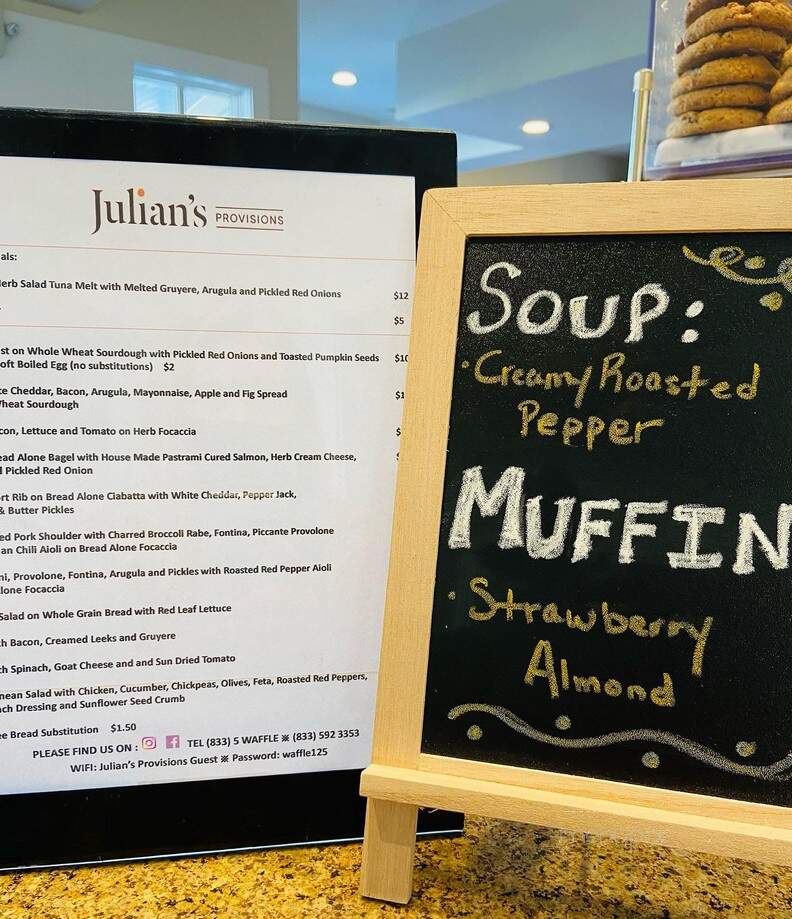 Julian's PROVISIONS
als:
erb Salad Tuna Melt with Melted Gruyere, Arugula and Pickled Red Onions $12
$5
st on Whole Wheat Sourdough with Pickled Red Onions and Toasted Pumpkin Seeds $10
oft Boiled Egg (no substitutions) $2
te Cheddar, Bacon, Arugula, Mayonnaise, Apple and Fig Spread $1
Wheat Sourdough
con, Lettuce and Tomato on Herb Focaccia $
ead Alone Bagel with House Made Pastrami Cured Salmon, Herb Cream Cheese, $
Pickled Red Onion
rt Rib on Bread Alone Ciabatta with White Cheddar, Pepper Jack,
& Butter Pickles
ed Pork Shoulder with Charred Broccoli Rabe, Fontina, Piccante Provolone
an Chili Aioli on Bread Alone Focaccia
ni, Provolone, Fontina, Arugula and Pickles with Roasted Red Pepper Aioli
lone Focaccia
Salad on Whole Grain Bread with Red Leaf Lettuce
th Bacon, Creamed Leeks and Gruyere
th Spinach, Goat Cheese and and Sun Dried Tomato
nean Salad with Chicken, Cucumber, Chickpeas, Olives, Feta, Roasted Red Peppers,
ch Dressing and Sunflower Seed Crumb
ee Bread Substitution $1.50
PLEASE FIND US ON : TEL (833) 5 WAFFLE ※ (833) 592 3353
WIFI: Julian's Provisions Guest ※ Password: waffle125
SOUP:
· Creamy Roasted
Pepper
MUFFIN
· Strawberry
Almond